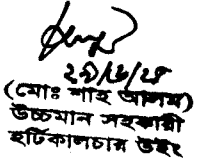 ২৯/৬/২৫
(মোঃ শাহ আলম)
উচ্চমান সহকারী
হর্টিকালচার উইং